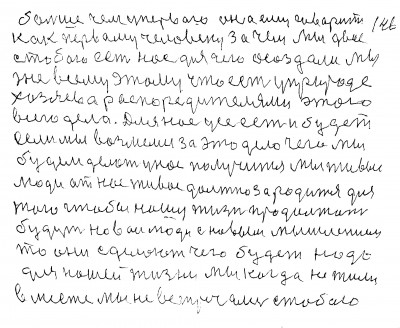 больше чем первого она ему говорити 146
как первому человеку зачем мы двое
стобого ест нас для чего создали мы
же всему этому что ест у природе
хозяева распорядителями этого
всего дела. Для нас усе ест и будет
если мы возмемси за это дело чего мы
будем делат у нас получится мы живые
люди от нас живое должно зародится для
того чтобы нашу жизн продолжат
будут новаи люди с новым мышлением
то они сделают чего будет надо
для нашей жизни мы когда не жили
вместе мы не встричалис стобою